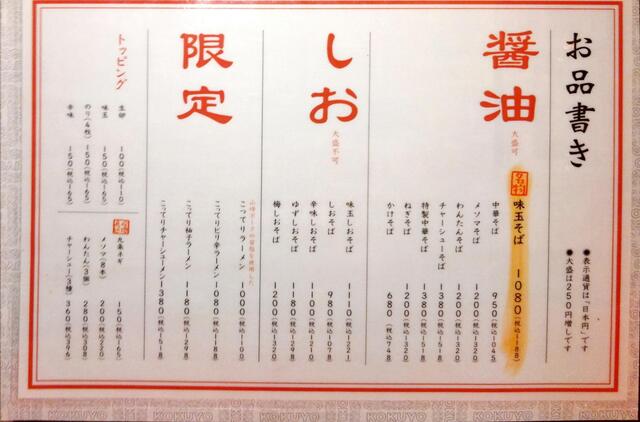 お品書き
●表示通貨は「日本円」です
●大盛は250円増しです
醤油
大盛可
味玉そば 1080(税込1188)
中華そば 950(税込1045)
メンマそば 1200(税込1320)
わんたんそば 1200(税込1320)
チャーシューそば 1380(税込1518)
特製中華そば 1380(税込1518)
ねぎそば 1200(税込1320)
かけそば 680(税込748)
しお
大盛不可
味玉しおそば 1110(税込1221)
しおそば 980(税込1078)
辛味しおそば 1100(税込1210)
ゆずしおそば 1180(税込1298)
梅しおそば 1200(税込1320)
限定
こってりラーメン 1000(税込1100)
こってりピリ辛ラーメン 1080(税込1188)
こってり柚子ラーメン 1180(税込1298)
こってりチャーシューメン 1380(税込1518)
トッピング
生卵 100(税込110)
味玉 150(税込165)
のり(4枚) 150(税込165)
辛味 150(税込165)
九条ネギ 150(税込165)
メンマ(8本) 200(税込220)
わんたん(3個) 280(税込308)
チャーシュー(3種) 360(税込396)
KOKUYO